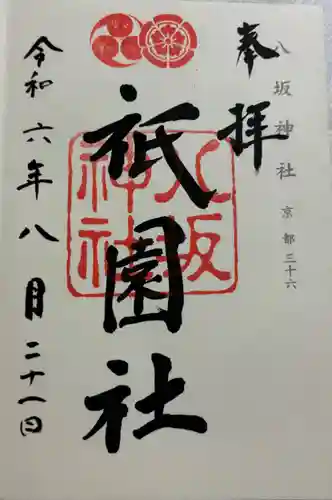 八坂神社 京都三十六
奉拝
祇園社
八坂神社
令和六年八月二十一日